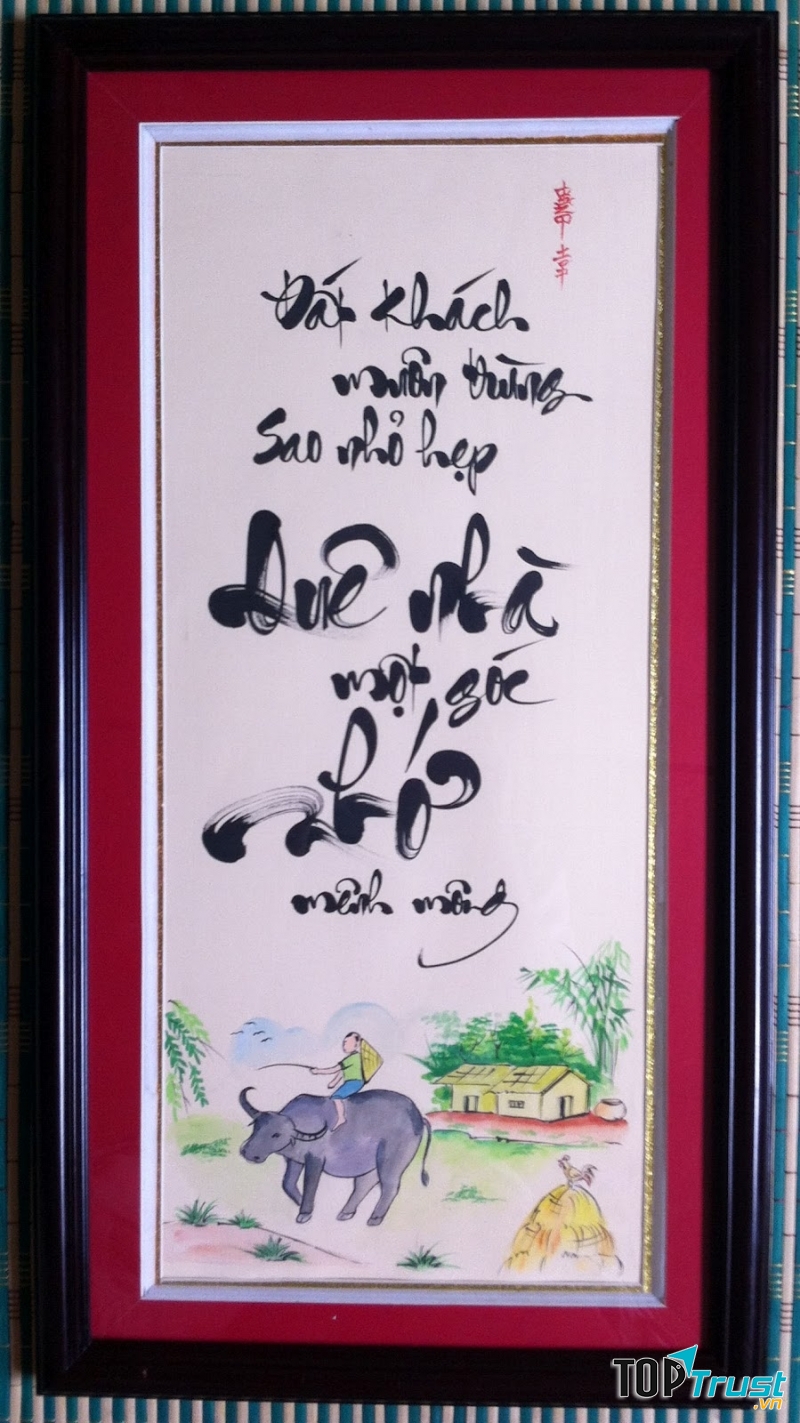 Đất khách
muôn trùng
Sao nhỏ hẹp
Quê nhà
một góc
nhớ
mênh mông
TOPTrust
.vn